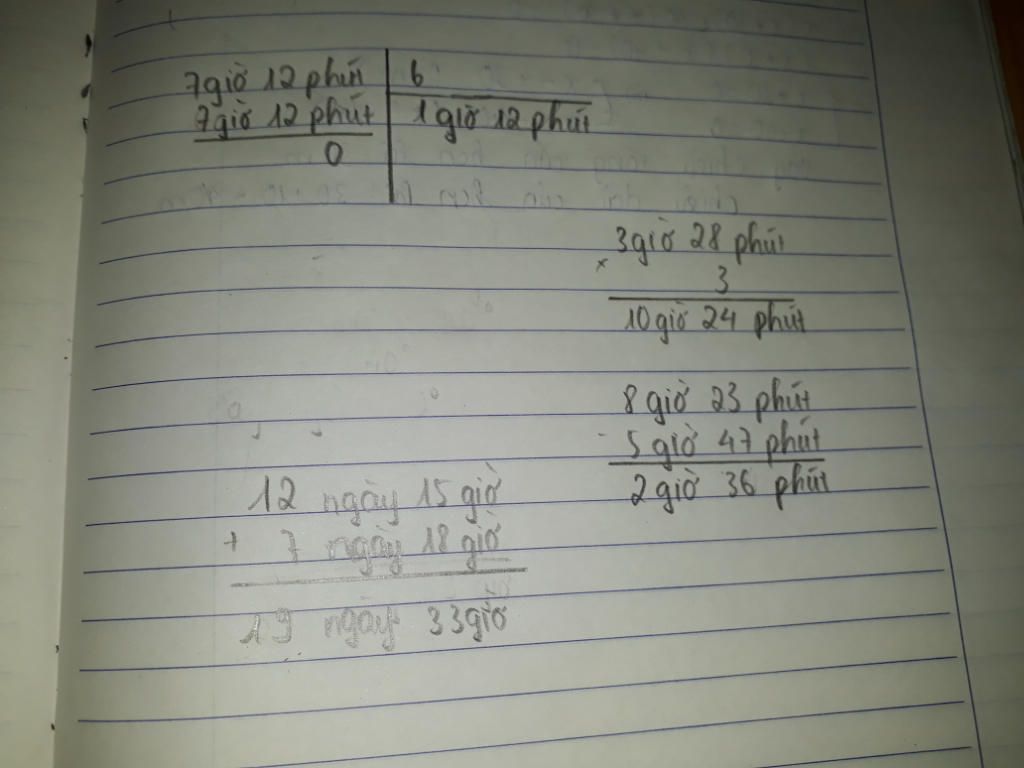 7giờ 12 phút | 6
7giờ 12 phút | 1 giờ 12 phút
0
3giờ 28 phút
× 3
10giờ 24 phút
8 giờ 23 phút
- 5 giờ 47 phút
2 giờ 36 phút
12 ngày 15 giờ
+ 7 ngày 18 giờ
19 ngày 33giờ